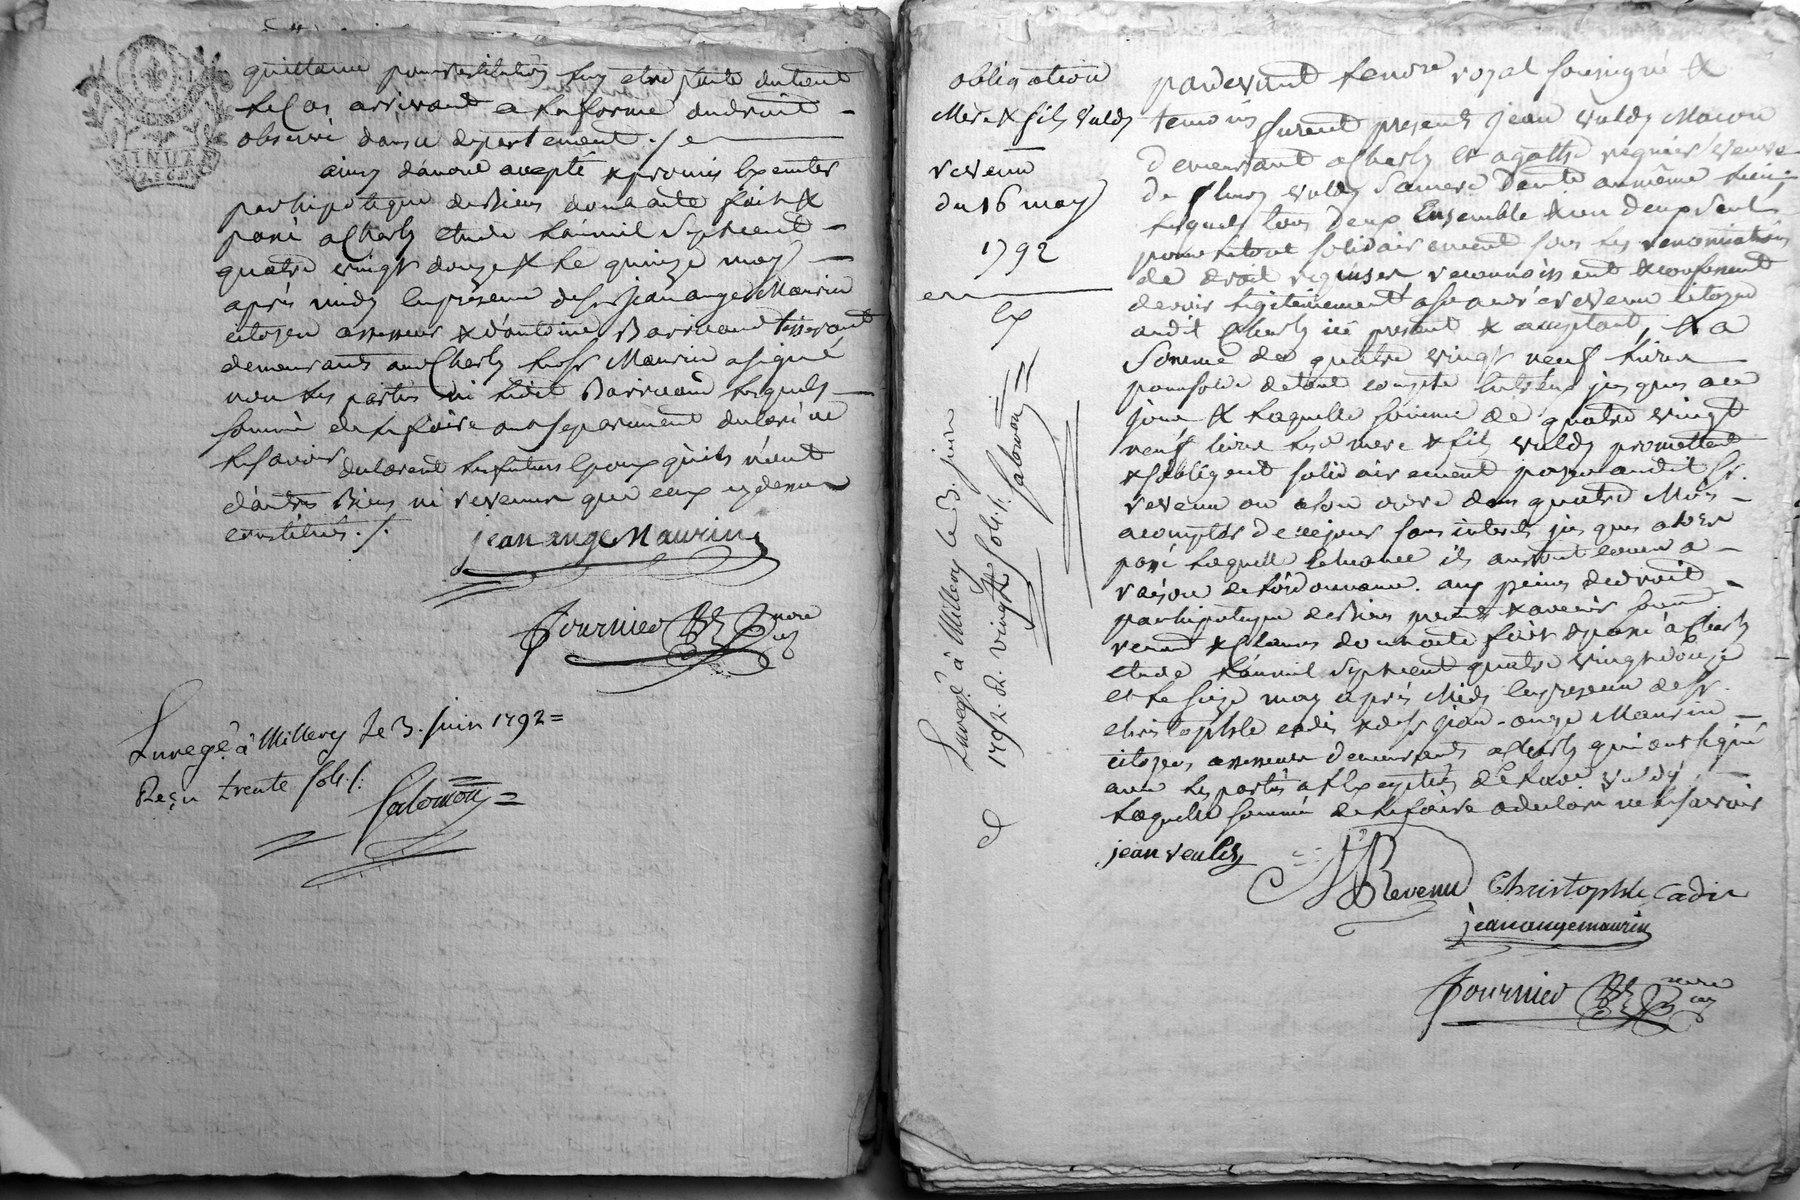 quittance pour restitution luy etre faite du tout
le cas arrivant a la forme du droit
observé dans ce departement ./.
ainsy d'amour accepté & promis executer
par hipoteque de Biens dont acte fait &
passé a Charly etude l'an mil sept cent
quatre vingt douze & le quinze may
après midy en presence de sr Jean ange Maurin
citoyen assesseur & d'antoine Barricaud tisserant
demeurants aud Charly led sr Maurin a signé
non les parties ni ledit Barricaud lesquels
sommé de le faire ont separement declaré ne
le savoir declarent les futurs Epoux qu'ils n'ont
d'autres Biens ni revenus que ceux cy dessus
constitués ./.
jean ange Maurin
Fournier nore
Enregé à Millery le 3. juin 1792 =
Reçu trente sols ./.
Salomon =
MINUT
obligation
Mere & fils Valdy
revenu
du 16 may
1792
Ex
Enregé à Millery le 3. juin
1792. R. vingt sols ./. Salomon
par devant le nore royal soussigné &
temoins furent presents jean valdy Macon
demeurant a Charly et agathe veuve
de valdy sa mere au même lieu
lesquels tous deux Ensemble & un deux seul
pour le tout solidairement sous les renonciations
de droit requises reconnoissent & confessent
devoir legitimement a revenu citoyen
audit Charly ici present & acceptant, la
somme de quatre vingt neuf livres
pour solde de tout compte entr'eux jusques a ce
jour & laquelle somme de quatre vingt
neuf livres lesd mere & fils valdy promettent
& s'obligent solidairement payer audit sr.
revenu ou a son ordre dans quatre Mois
a compter de ce jour sans interets jusques alors
passé laquelle echeance ils auront cours a
raison de l'ordonnance. aux peines de droit
par hipoteque de Biens presents & avenir
& clauses dont acte fait & passé à Charly
etude l'an mil sept cent quatre vingt douze
et le seize may après Midy en presence de sr.
christophle cadis & de sr jean-ange Maurin
citoyen assesseur demeurants a Charly qui ont signé
avec les parties a l'exception de la ve valdy
laquelle sommé de le faire a declaré ne le savoir
jean Valdy
Revenu Christophle Cadis
jean ange maurin
Fournier nore